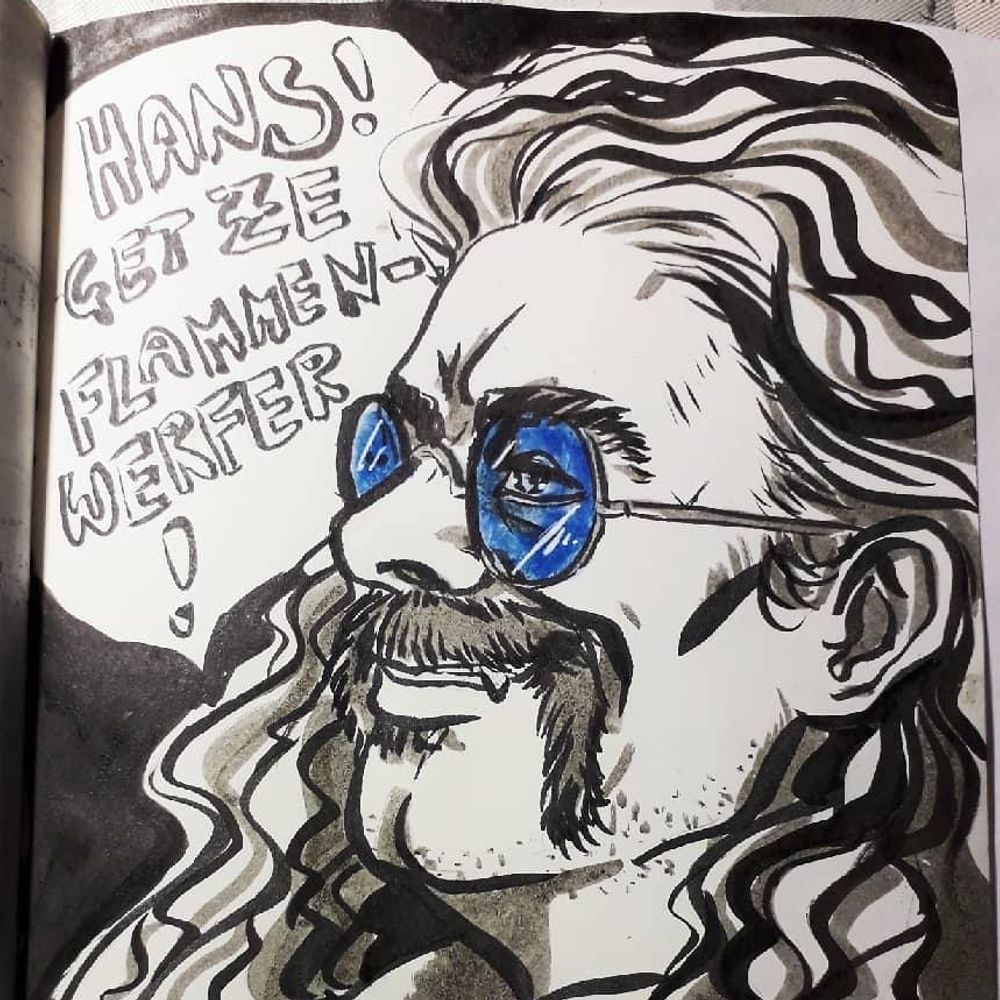 HANS!
GET ZE
FLAMMEN-
WERFER
!